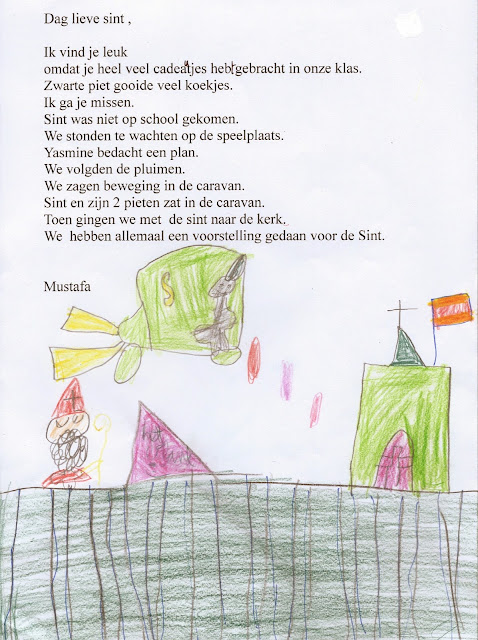 Dag lieve sint ,
Ik vind je leuk
omdat je heel veel cadeautjes hebt gebracht in onze klas.
Zwarte piet gooide veel koekjes.
Ik ga je missen.
Sint was niet op school gekomen.
We stonden te wachten op de speelplaats.
Yasmine bedacht een plan.
We volgden de pluimen.
We zagen beweging in de caravan.
Sint en zijn 2 pieten zat in de caravan.
Toen gingen we met de sint naar de kerk.
We hebben allemaal een voorstelling gedaan voor de Sint.
Mustafa
S